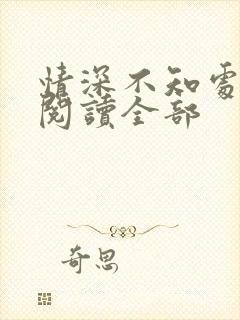 情深不知處
閱讀全部
奇思